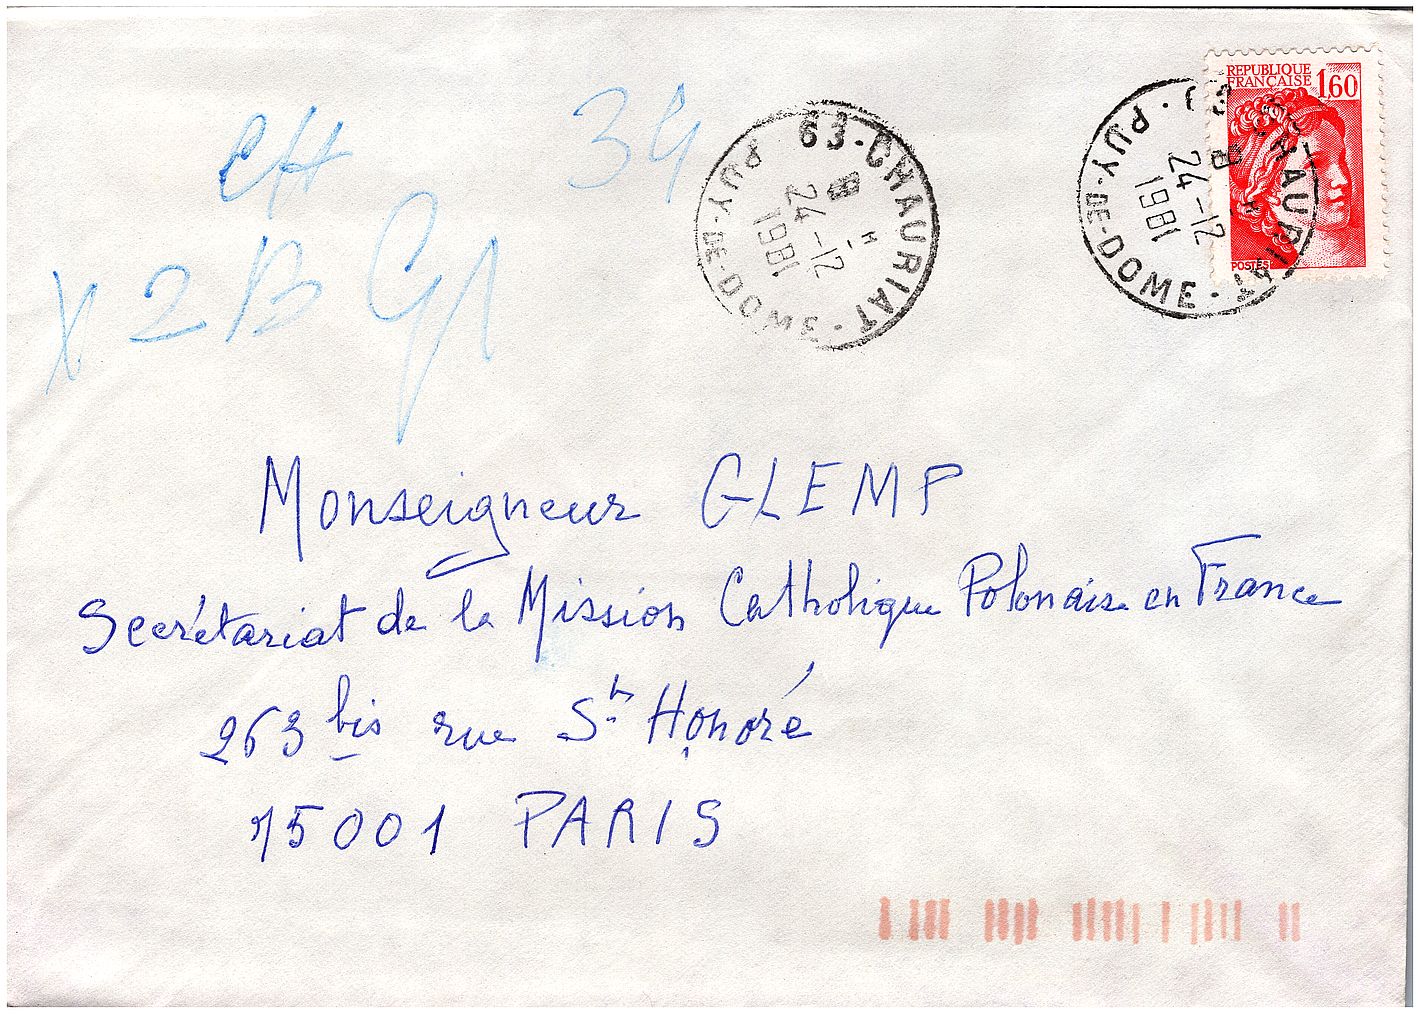 REPUBLIQUE
FRANÇAISE 1,60
POSTES
63-CHAURIAT
8 H
24-12
1981
PUY-DE-DOME
63-CHAURIAT
8 H
24-12
1981
PUY-DE-DOME
CH 34
X 2 B
Monseigneur GLEMP
Secrétariat de la Mission Catholique Polonaise en France
263 bis rue St Honoré
75001 PARIS